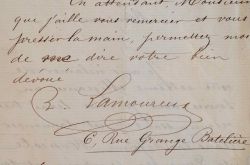 En attendant, Monsieur
que j'aille vous remercier et vous
presser la main, permettez moi
de me dire votre bien
dévoué
Lamoureux
6, Rue Grange Batelière